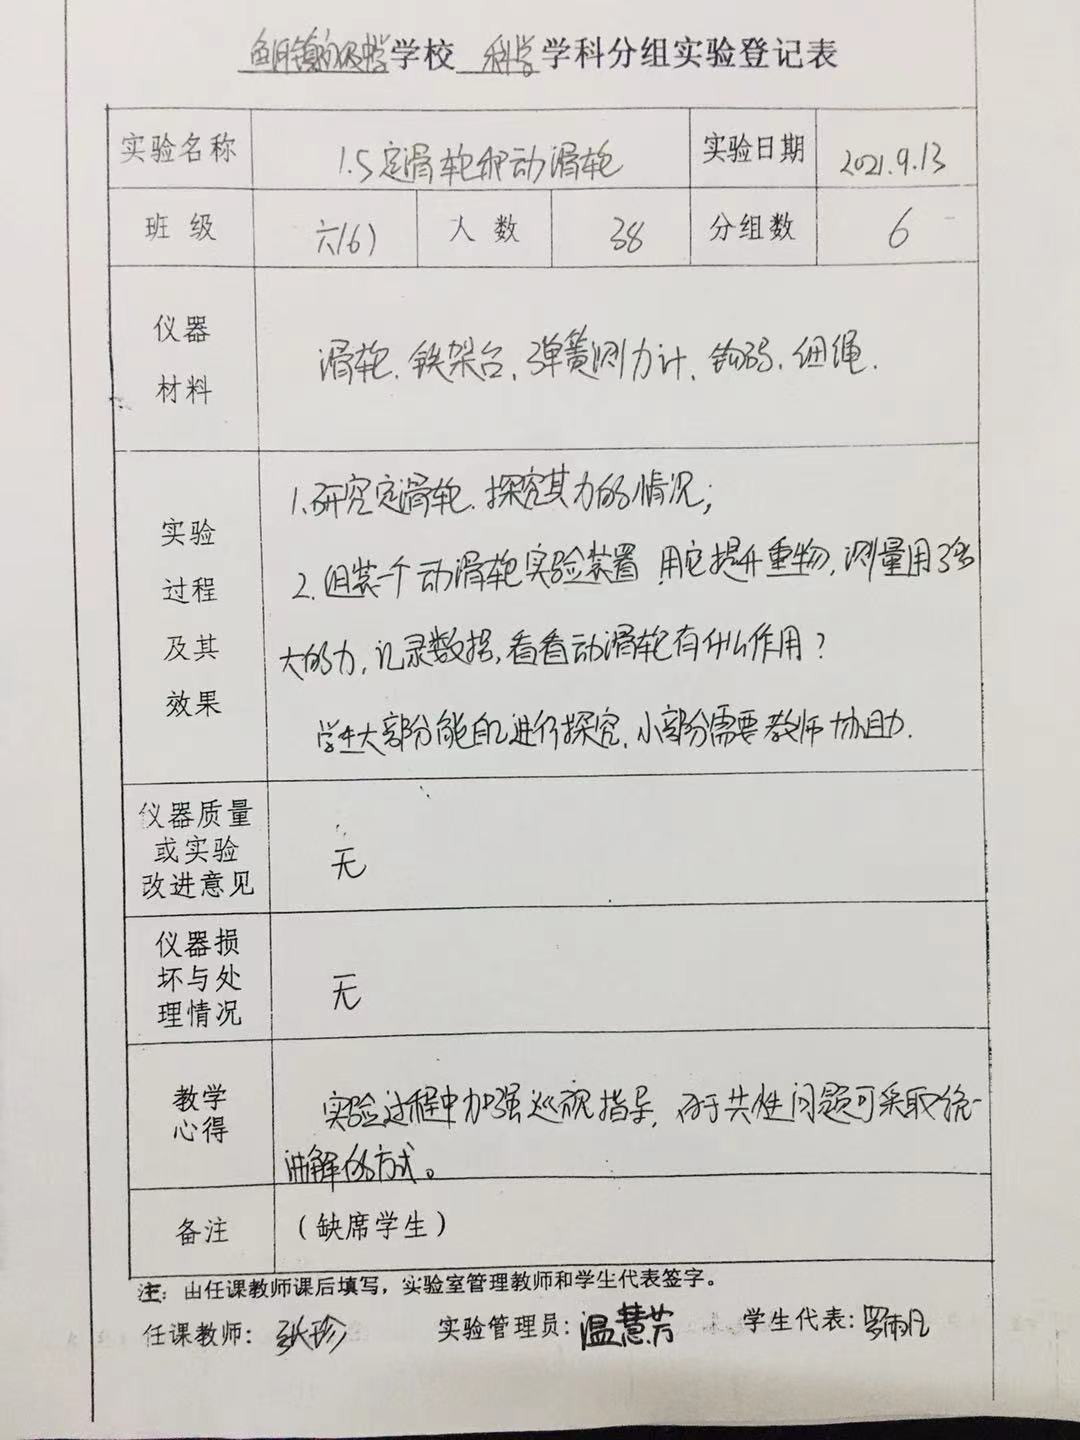 学校 科学 学科分组实验登记表
实验名称 1.5定滑轮和动滑轮 实验日期 2021.9.13
班 级 六(6) 人 数 38 分组数 6
仪器
材料
滑轮、铁架台、弹簧测力计、钩码、细绳.
实验
过程
及其
效果
1.研究定滑轮、探究其力的情况;
2.组装一个动滑轮实验装置 用它提升重物,测量用了多
大的力,记录数据,看看动滑轮有什么作用?
学生大部分能自己进行探究,小部分需要教师协助.
仪器质量
或实验
改进意见
无
仪器损
坏与处
理情况
无
教学
心得
实验过程中加强巡视指导,对于共性问题可采取统一
讲解的方式。
备注 (缺席学生)
注:由任课教师课后填写,实验室管理教师和学生代表签字。
任课教师: 张珍 实验管理员: 温慧芳 学生代表: 罗雨凡